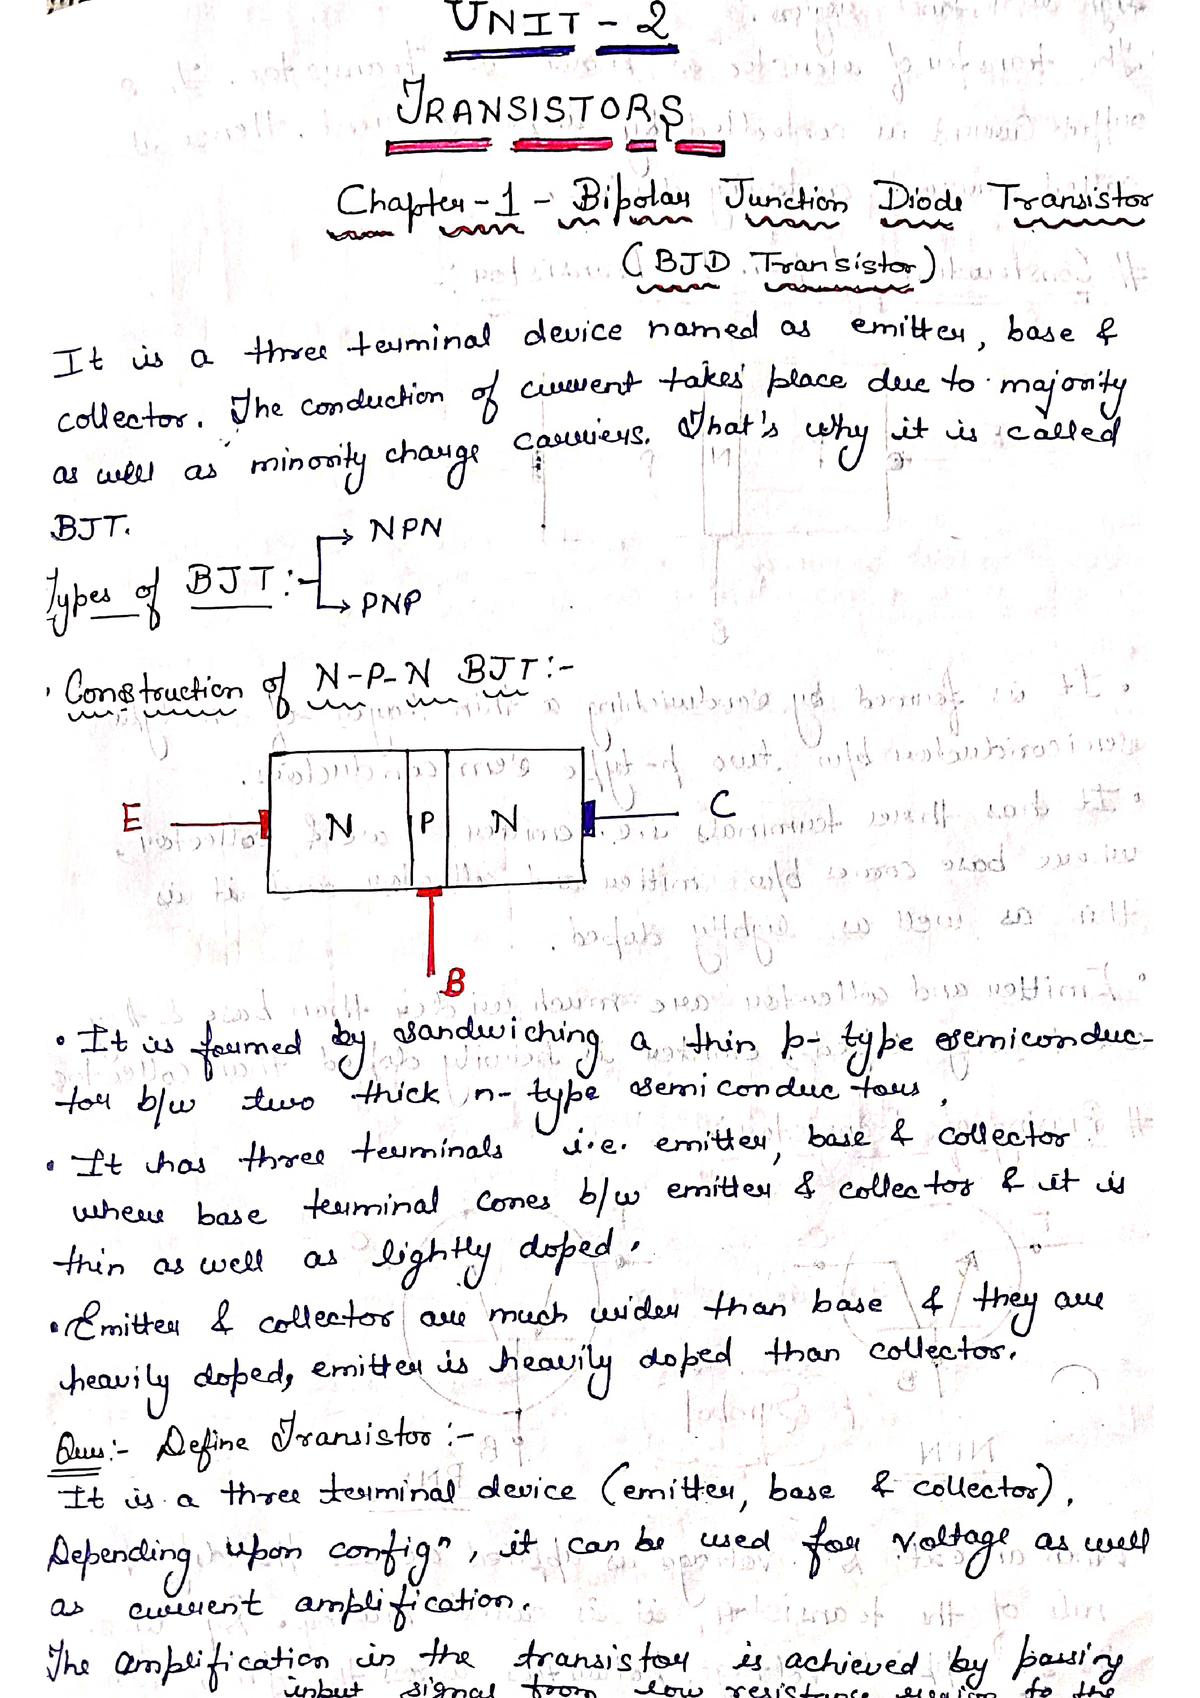 UNIT - 2
TRANSISTORS
Chapter-1 - Bipolar Junction Diode Transistor
(BJD Transistor)
It is a three terminal device named as emitter, base &
collector. The conduction of current takes place due to majority
as well as minority charge carriers. That's why it is called
BJT.
NPN
Types of BJT :-
PNP
Construction of N-P-N BJT :-
E N P N C
B
• It is formed by sandwiching a thin p- type semiconduc-
tor b/w two thick n- type semiconductors,
• It has three terminals i.e. emitter, base & collector
where base terminal comes b/w emitter & collector & it is
thin as well as lightly doped.
• Emitter & collector are much wider than base & they are
heavily doped, emitter is heavily doped than collector.
Ques:- Define Transistor :-
It is a three terminal device (emitter, base & collector).
Depending upon configⁿ, it can be used for voltage as well
as current amplification.
The amplification in the transistor is achieved by passing
input signal from low resistance region to the